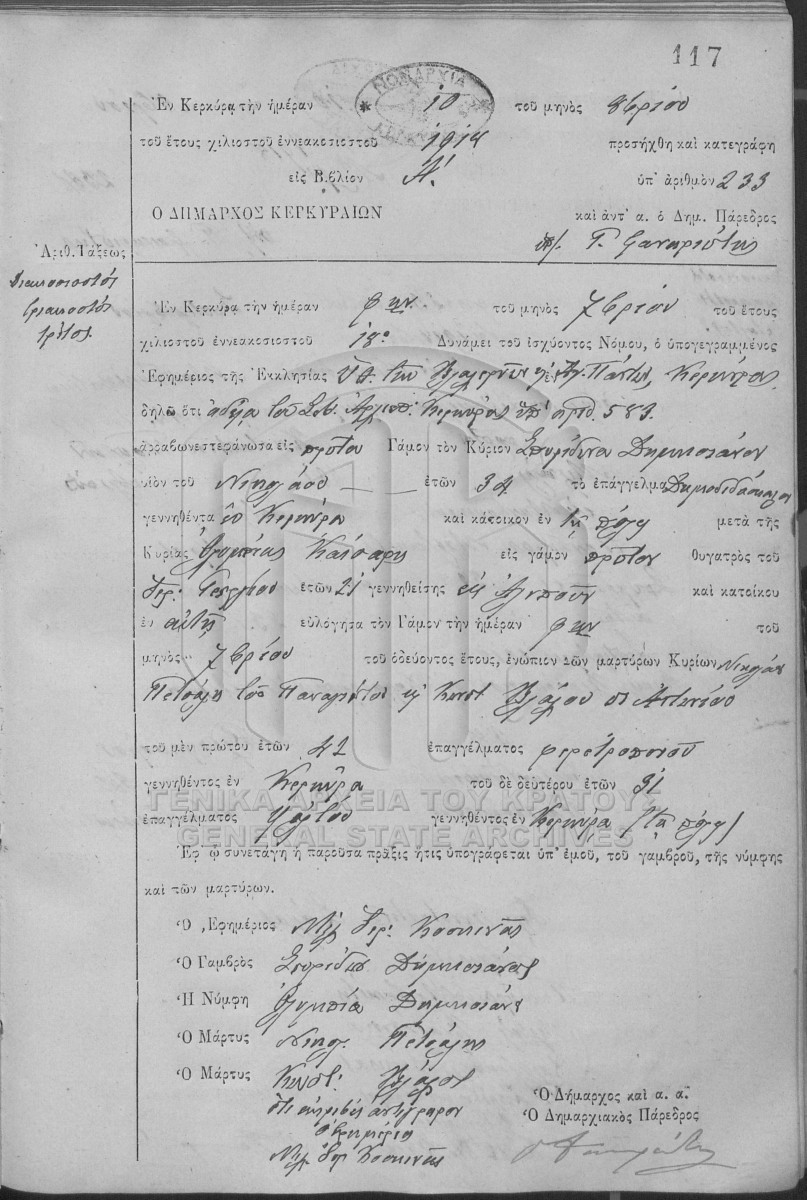 117
ΝΟΜΑΡΧΙΑ
Ἐν Κερκύρᾳ τὴν ἡμέραν 10 τοῦ μηνὸς 8βρίου
τοῦ ἔτους χιλιοστοῦ ἐννεακοσιοστοῦ 1918 προσήχθη καὶ κατεγράφη
εἰς Βιβλίον Α. ὑπ' ἀριθμὸν 233
Ο ΔΗΜΑΡΧΟΣ ΚΕΡΚΥΡΑΙΩΝ καὶ ἀντ' α. ὁ Δημ. Πάρεδρος
Ἀριθ. Τάξεως
Διακοσιοστὸς
τριακοστὸς
τρίτος
Ἐν Κερκύρᾳ τὴν ἡμέραν τοῦ μηνὸς 7βρίου τοῦ ἔτους
χιλιοστοῦ ἐννεακοσιοστοῦ 18ο Δυνάμει τοῦ ἰσχύοντος Νόμου, ὁ ὑπογεγραμμένος
Ἐφημέριος τῆς Ἐκκλησίας Κερκύρας
δηλῶ ὅτι ἀδείᾳ τοῦ Σεβ. Ἀρχιεπ. Κερκύρας ὑπ' ἀριθ. 583.
ἀρραβωνεστεφάνωσα εἰς πρῶτον Γάμον τὸν Κύριον Σπυρίδωνα
υἱὸν τοῦ Νικολάου ἐτῶν 34 τὸ ἐπάγγελμα Δημοδιδάσκαλον
γεννηθέντα ἐν Κερκύρᾳ καὶ κάτοικον ἐν τῇ πόλει μετὰ τῆς
Κυρίας Ὀλυμπίας Καίσαρη εἰς γάμον πρῶτον θυγατρὸς τοῦ
Ἱερ. Γεωργίου ἐτῶν 21 γεννηθείσης εἰς Ἀλεποῦν καὶ κατοίκου
ἐν αὐτῇ εὐλόγησα τὸν Γάμον τὴν ἡμέραν τοῦ
μηνὸς 7βρίου τοῦ ὁδεύοντος ἔτους, ἐνώπιον τῶν μαρτύρων Κυρίων Νικολάου
Πετσάλη τοῦ Παναγιώτου κ' Κωνστ. Βλάχου τοῦ Ἀντωνίου
τοῦ μὲν πρώτου ἐτῶν 42 ἐπαγγέλματος φερετροποιοῦ
γεννηθέντος ἐν Κερκύρᾳ τοῦ δὲ δευτέρου ἐτῶν 31
ἐπαγγέλματος γεννηθέντος ἐν Κερκύρᾳ (τῇ πόλει)
Ἐφ ᾧ συνετάγη ἡ παροῦσα πρᾶξις ἥτις ὑπογράφεται ὑπ' ἐμοῦ, τοῦ γαμβροῦ, τῆς νύμφης
καὶ τῶν μαρτύρων.
Ὁ Ἐφημέριος Ἱερ. Κοσκινᾶς
Ὁ Γαμβρὸς Σπυρίδων
Ἡ Νύμφη Ὀλυμπία
Ὁ Μάρτυς Νικολ. Πετσάλης
Ὁ Μάρτυς Κωνστ. Βλάχος
ὅτι ἀκριβὲς ἀντίγραφον
ὁ Ἐφημέριος
Ἱερ. Κοσκινᾶς
Ὁ Δήμαρχος καὶ α. α.
Ὁ Δημαρχιακὸς Πάρεδρος
ΓΕΝΙΚΑ ΑΡΧΕΙΑ ΤΟΥ ΚΡΑΤΟΥΣ
GENERAL STATE ARCHIVES